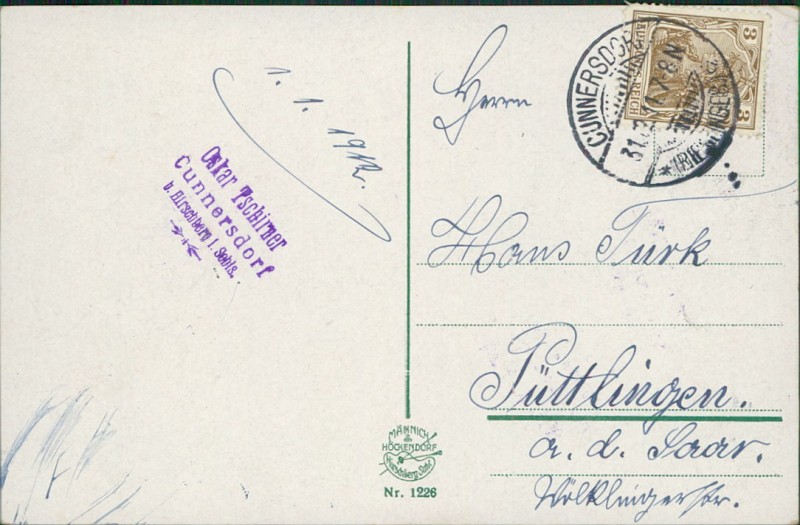 1. 1. 1912.
Oskar Tschirner
Cunnersdorf
b. Hirschberg i. Schls.
MÄNNICH
&
HÖCKENDORF
Hirschberg Schl.
Nr. 1226
3
3
REICH
CUNNERSDORF
31.12.11.7-8N
Herrn
Hans Türk
Püttlingen.
a. d. Saar.
Völklingerstr.